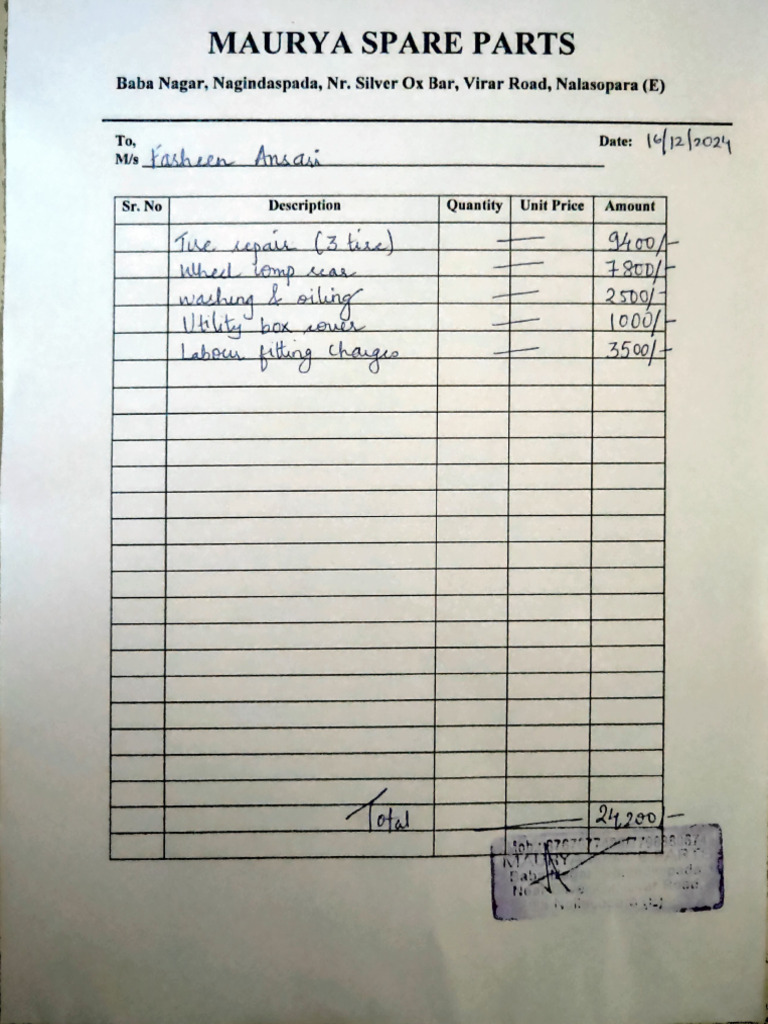 MAURYA SPARE PARTS
Baba Nagar, Nagindaspada, Nr. Silver Ox Bar, Virar Road, Nalasopara (E)
To,
Date: 16/12/2024
M/s Fasheen Ansari
Sr. No Description Quantity Unit Price Amount
Tire repair (3 tire) — 9400/-
Wheel comp rear — 7800/-
washing & oiling — 2500/-
Utility box cover — 1000/-
Labour fitting Charges — 3500/-
Total — 24,200/-
Road